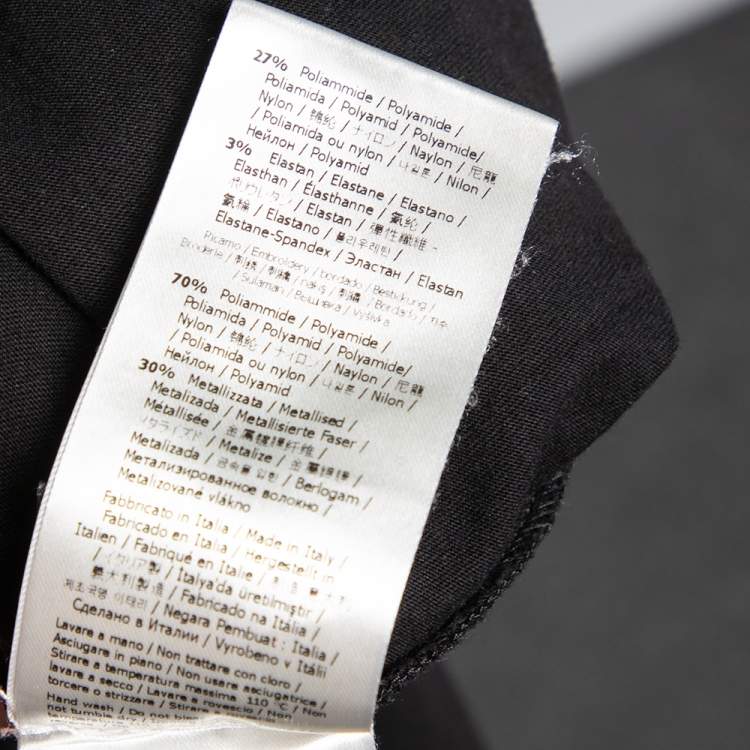 27% Poliammide / Polyamide /
Poliamida / Polyamid / Polyamide/
Nylon / 锦纶 / ナイロン / Naylon / 尼龍
/ Poliamida ou nylon / 나일론 / Nilon /
Нейлон / Polyamid
3% Elastan / Elastane / Elastano /
Elasthan / Élasthanne / 氨纶 /
ポリウレタン / Elastan / 彈性纖維 -
氨綸 / Elastano / 폴리우레탄 /
Elastane-Spandex / Эластан / Elastan
Ricamo / Embroidery / bordado / Bestickung /
Broderie / 刺绣 / 刺繍 / nakış / 刺繡 / Bordado / 자수
/ Sulaman / Вышивка / Výšivka
70% Poliammide / Polyamide /
Poliamida / Polyamid / Polyamide/
Nylon / 锦纶 / ナイロン / Naylon / 尼龍
/ Poliamida ou nylon / 나일론 / Nilon /
Нейлон / Polyamid
30% Metallizzata / Metallised /
Metalizada / Metallisierte Faser /
Metallisée / 金属镀膜纤维 /
メタライズド / Metalize / 金屬
Metalizada / 금속을 입힌 / Berlogam /
Метализированное волокно /
Metalizované vlákno
Fabbricato in Italia / Made in Italy /
Fabricado en Italia / Hergestellt in
Italien / Fabriqué en Italie /
/ イタリア製 / İtalya'da üretilmiştir /
義大利製造 / Fabricado na Itália /
제조국명 이태리 / Negara Pembuat : Italia /
Сделано в Италии / Vyrobeno v Itálii
Lavare a mano / Non trattare con cloro /
Asciugare in piano / Non usare asciugatrice /
Stirare a temperatura massima 110 °C / Non
lavare a secco / Lavare a rovescio / Non
torcere o strizzare / Stirare a rovescio
Hand wash / Do not
not tumble dry /